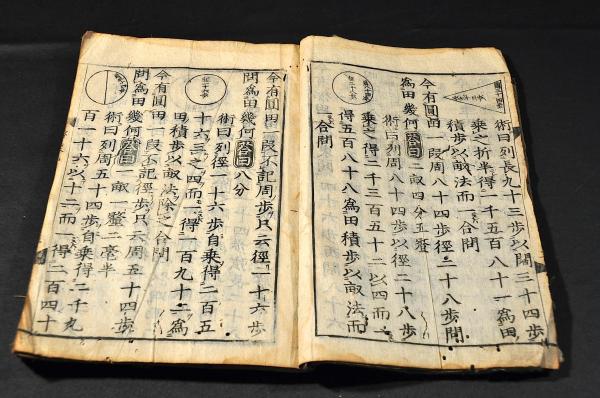 術曰列長九十三步以闊三十四步
乘之折半得一千五百八十一為田
積步以畝法而一合問
今有圓田一段周八十四步徑二十八步問
為田幾何答曰二畝四分五釐
術曰列周八十四步以徑二十八步
乘之得二千三百五十二以四而一
得五百八十八為田積步以畝法而
合問
今有圓田一段不記周步只云徑一十六步
問為田幾何答曰八分
術曰列徑一十六步自乘得二百五
十六三之四而一得一百九十二為
田積步以畝法除之合問
今有圓田一段不記徑步只云周五十四步
問為田幾何答曰一畝一釐二毫半
術曰列周五十四步自乘得二千九
百一十六以十二而一得二百四十